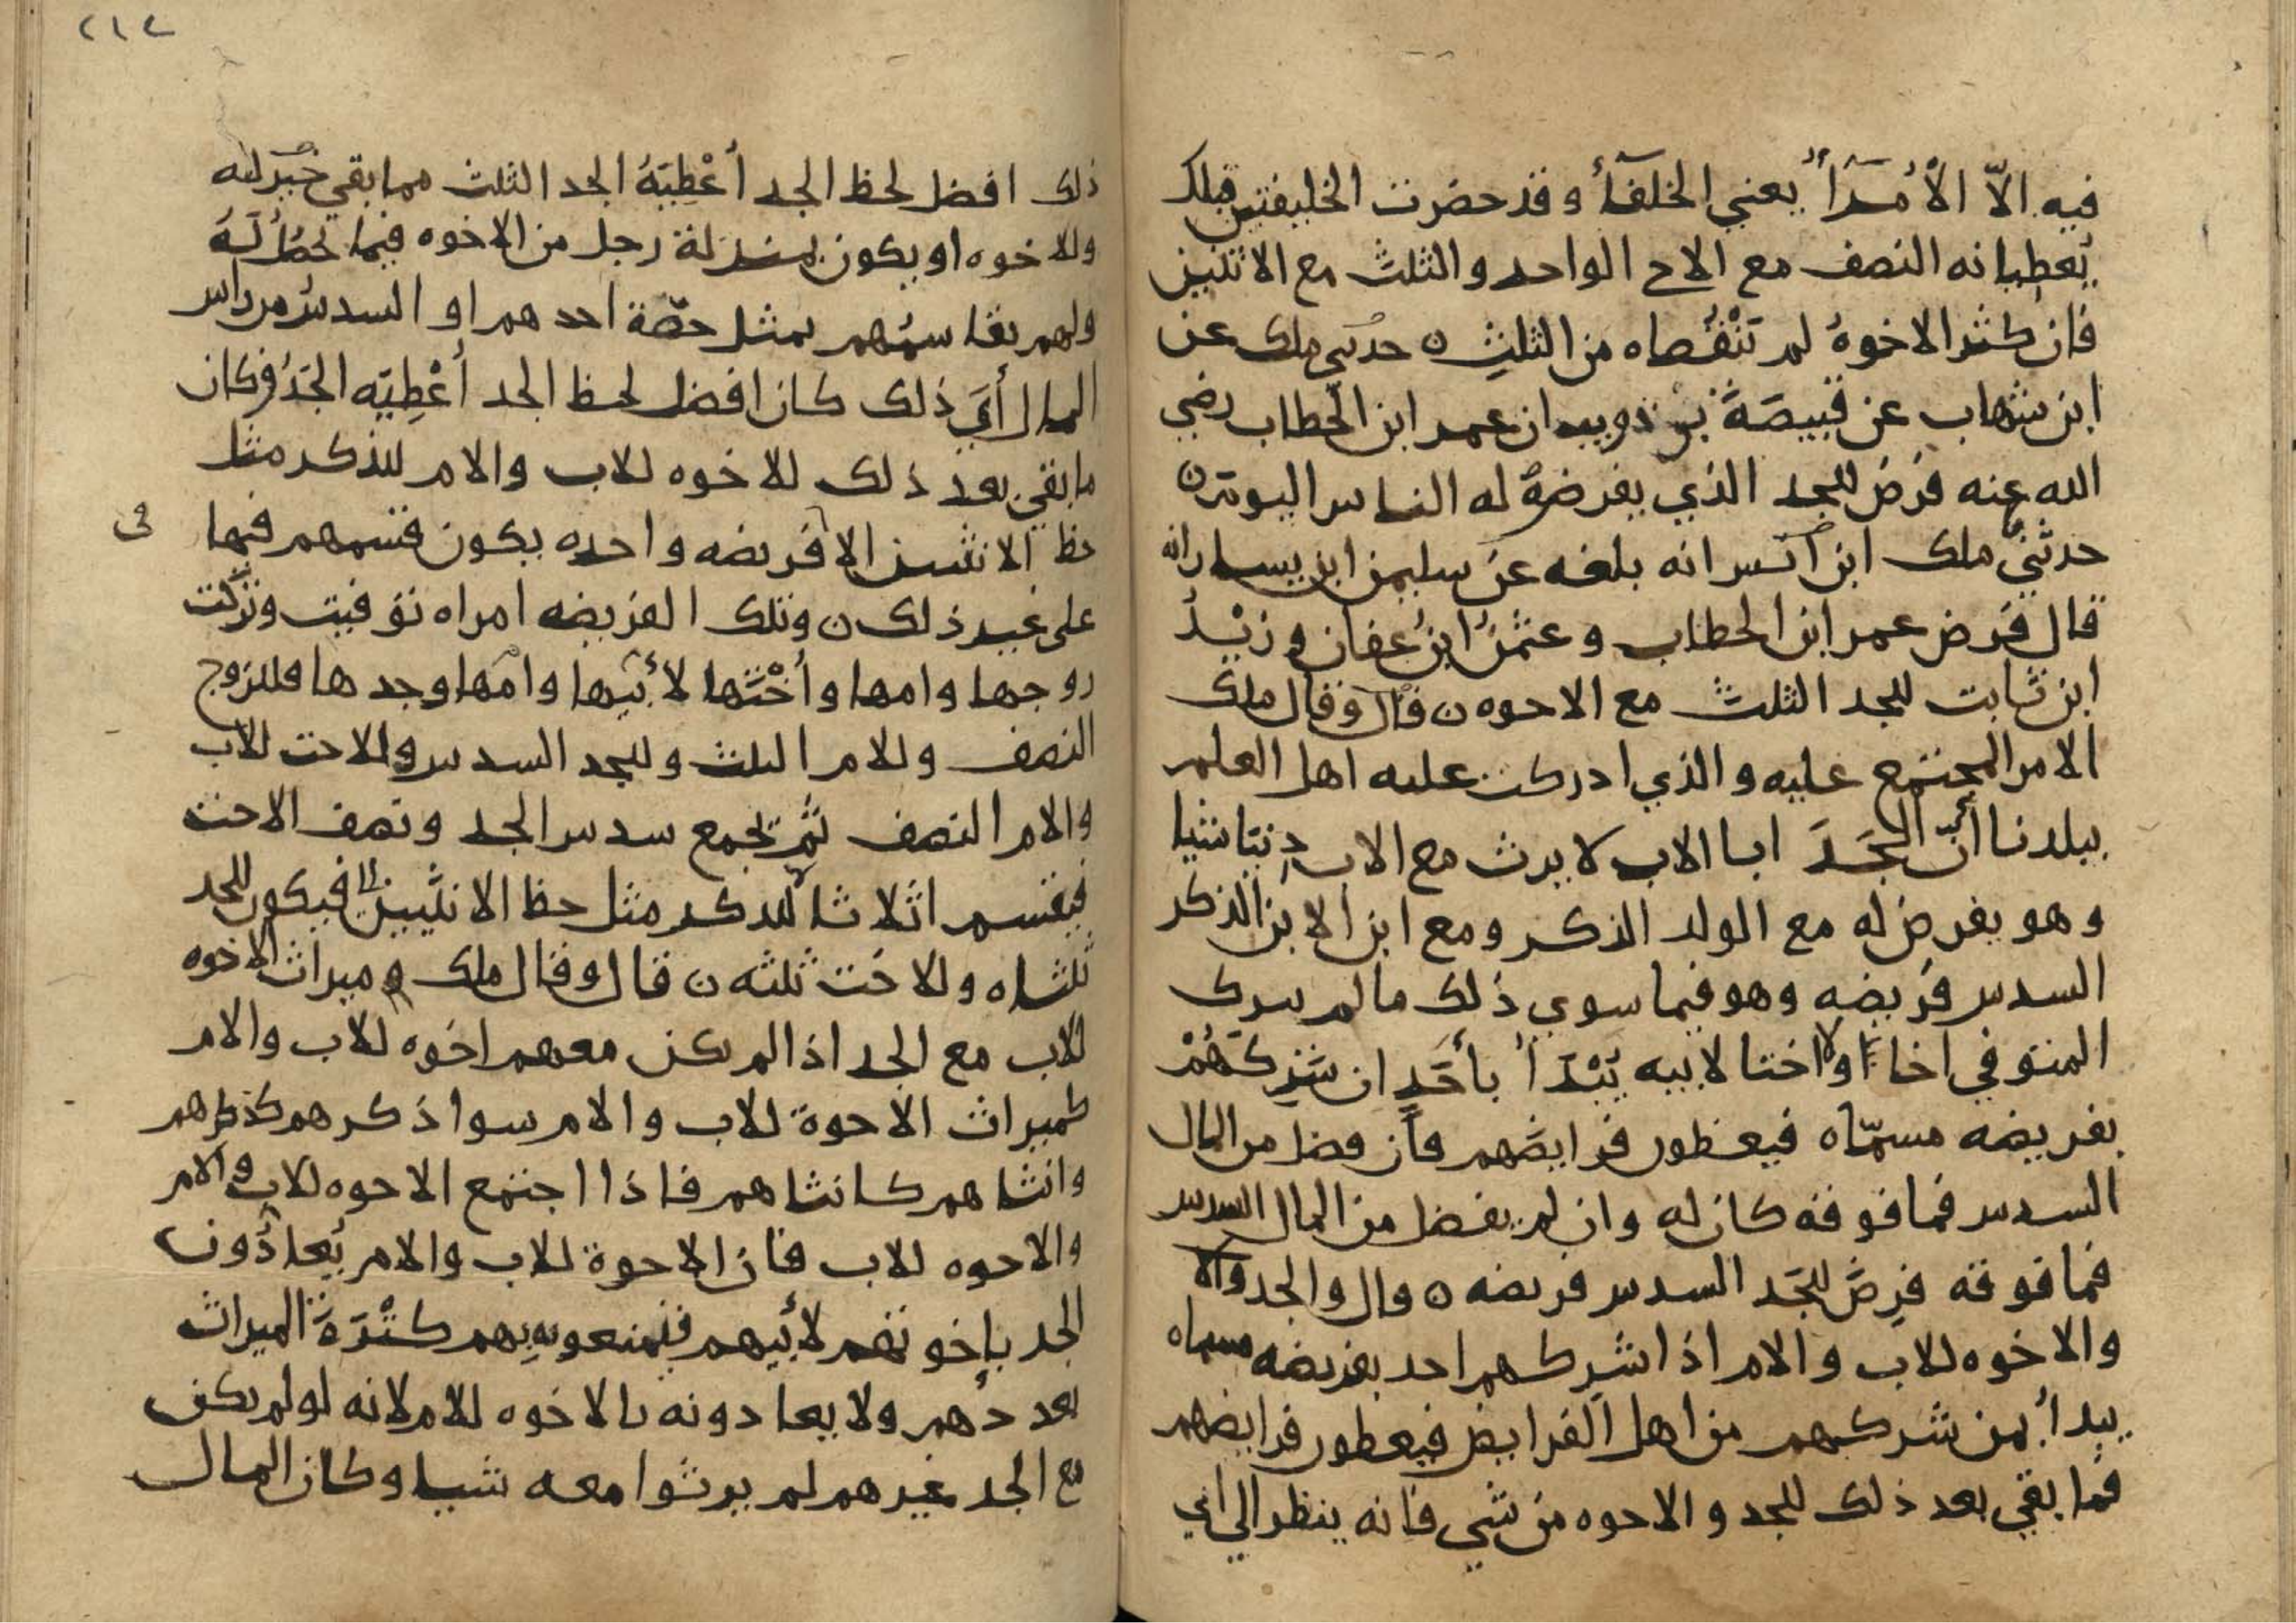 فيه الاّ الاُمَرَآءُ يعني الخلفآءُ وقد حضرت الخليفتين قبلك
يُعطيانه النصف مع الاخ الواحد والثلث مع الاثنين
فان كثر الاخوةُ لم تَنْقُصاه من الثلثِ ن حدثني ملك عن
ابن شهاب عن قَبيصَةَ بن ذويب ان عمر ابن الخطاب رضي
الله عنه فَرَضَ للجد الذي يفرضهُ له الناس اليوم ن
حدثني ملك ابن انس انه بلغه عن سليمن ابن يسار انه
قال فَرض عمر ابن الخطاب وعثمن ابن عفان وزيْدُ
ابن ثابت للجد الثلث مع الاخوه ن قال وقال ملك
الامر المجتمع عليه والذي ادركت عليه اهل العلم
ببلدنا أنّ الجَدَ ابا الاب لا يرث مع الاب دنيا شيا
وهو يفرض له مع الولد الذكر ومع ابن الابن الذكر
السدس فريضه وهو فيما سوي ذلك ما لم يترك
المتوفي اخا او اختا لابيه يُبْدَأُ بأحَدٍ ان شَرِكَهُمْ
بفريضه مسمّاه فيعطون فرايضهم فان فضل من المال
السدس فما فوقه كان له وان لم يفضل من المال السدس
فما فوقه فرِضَ للجَد السدس فريضه ن قال والجد
والاخوه للاب والام اذا شركهم احد بفريضه مسماه
يبدأ بمن شركهم من اهل الفرايض فيعطون فرايضهم
فما بقي بعد ذلك للجد والاخوه من شي فانه ينظر الي اي
٢١٤
ذلك افضل لحظ الجد أعْطِيَهُ الجد الثلث مما بقي خير له
وللاخوه او يكون بمنزلة رجل من الاخوه فيما يحصُل لَهُ
ولهم يقاسمُهم بمثل حصّة احدهم او السدسُ من راس
المال أي ذلك كان افضل لحظ الجد أعْطِيَه الجَدُ وكان
ما بقي بعد ذلك للاخوه للاب والام للذكر مثل
حظ الانثيين الا فريضه واحده يكون قسمهم فيها
في
على غير ذلك ن وتلك الفريضه امراه توفيت وتركت
زوجها وامها وأُخْتَها لأبيها وامها وجدها فللزوج
النصف وللام الثلث وللجد السدس وللاخت للاب
والام النصف ثم يجمع سدس الجد ونصف الاخت
فيقسم اثلاثا للذكر مثل حظ الانثيين فيكون للجد
ثلثاه وللاخت ثلثه ن قال وقال ملك وميراث الاخوه
للاب مع الجد اذا لم يكن معهم اخوه للاب والام
كميراث الاخوة للاب والام سوا ذكرهم كذكرهم
وانثاهم كانثاهم فاذا اجتمع الاخوه للاب والام
والاخوه للاب فان الاخوة للاب والام يُعادُّون
الجد بإخوتهم لأبيهم فيمنعونه بهم كَثْرَةَ الميراث
بعددهم ولا يعادونه بالاخوه للام لانه لو لم يكن
مع الجد غيرهم لم يرثوا معه شيا وكان المال